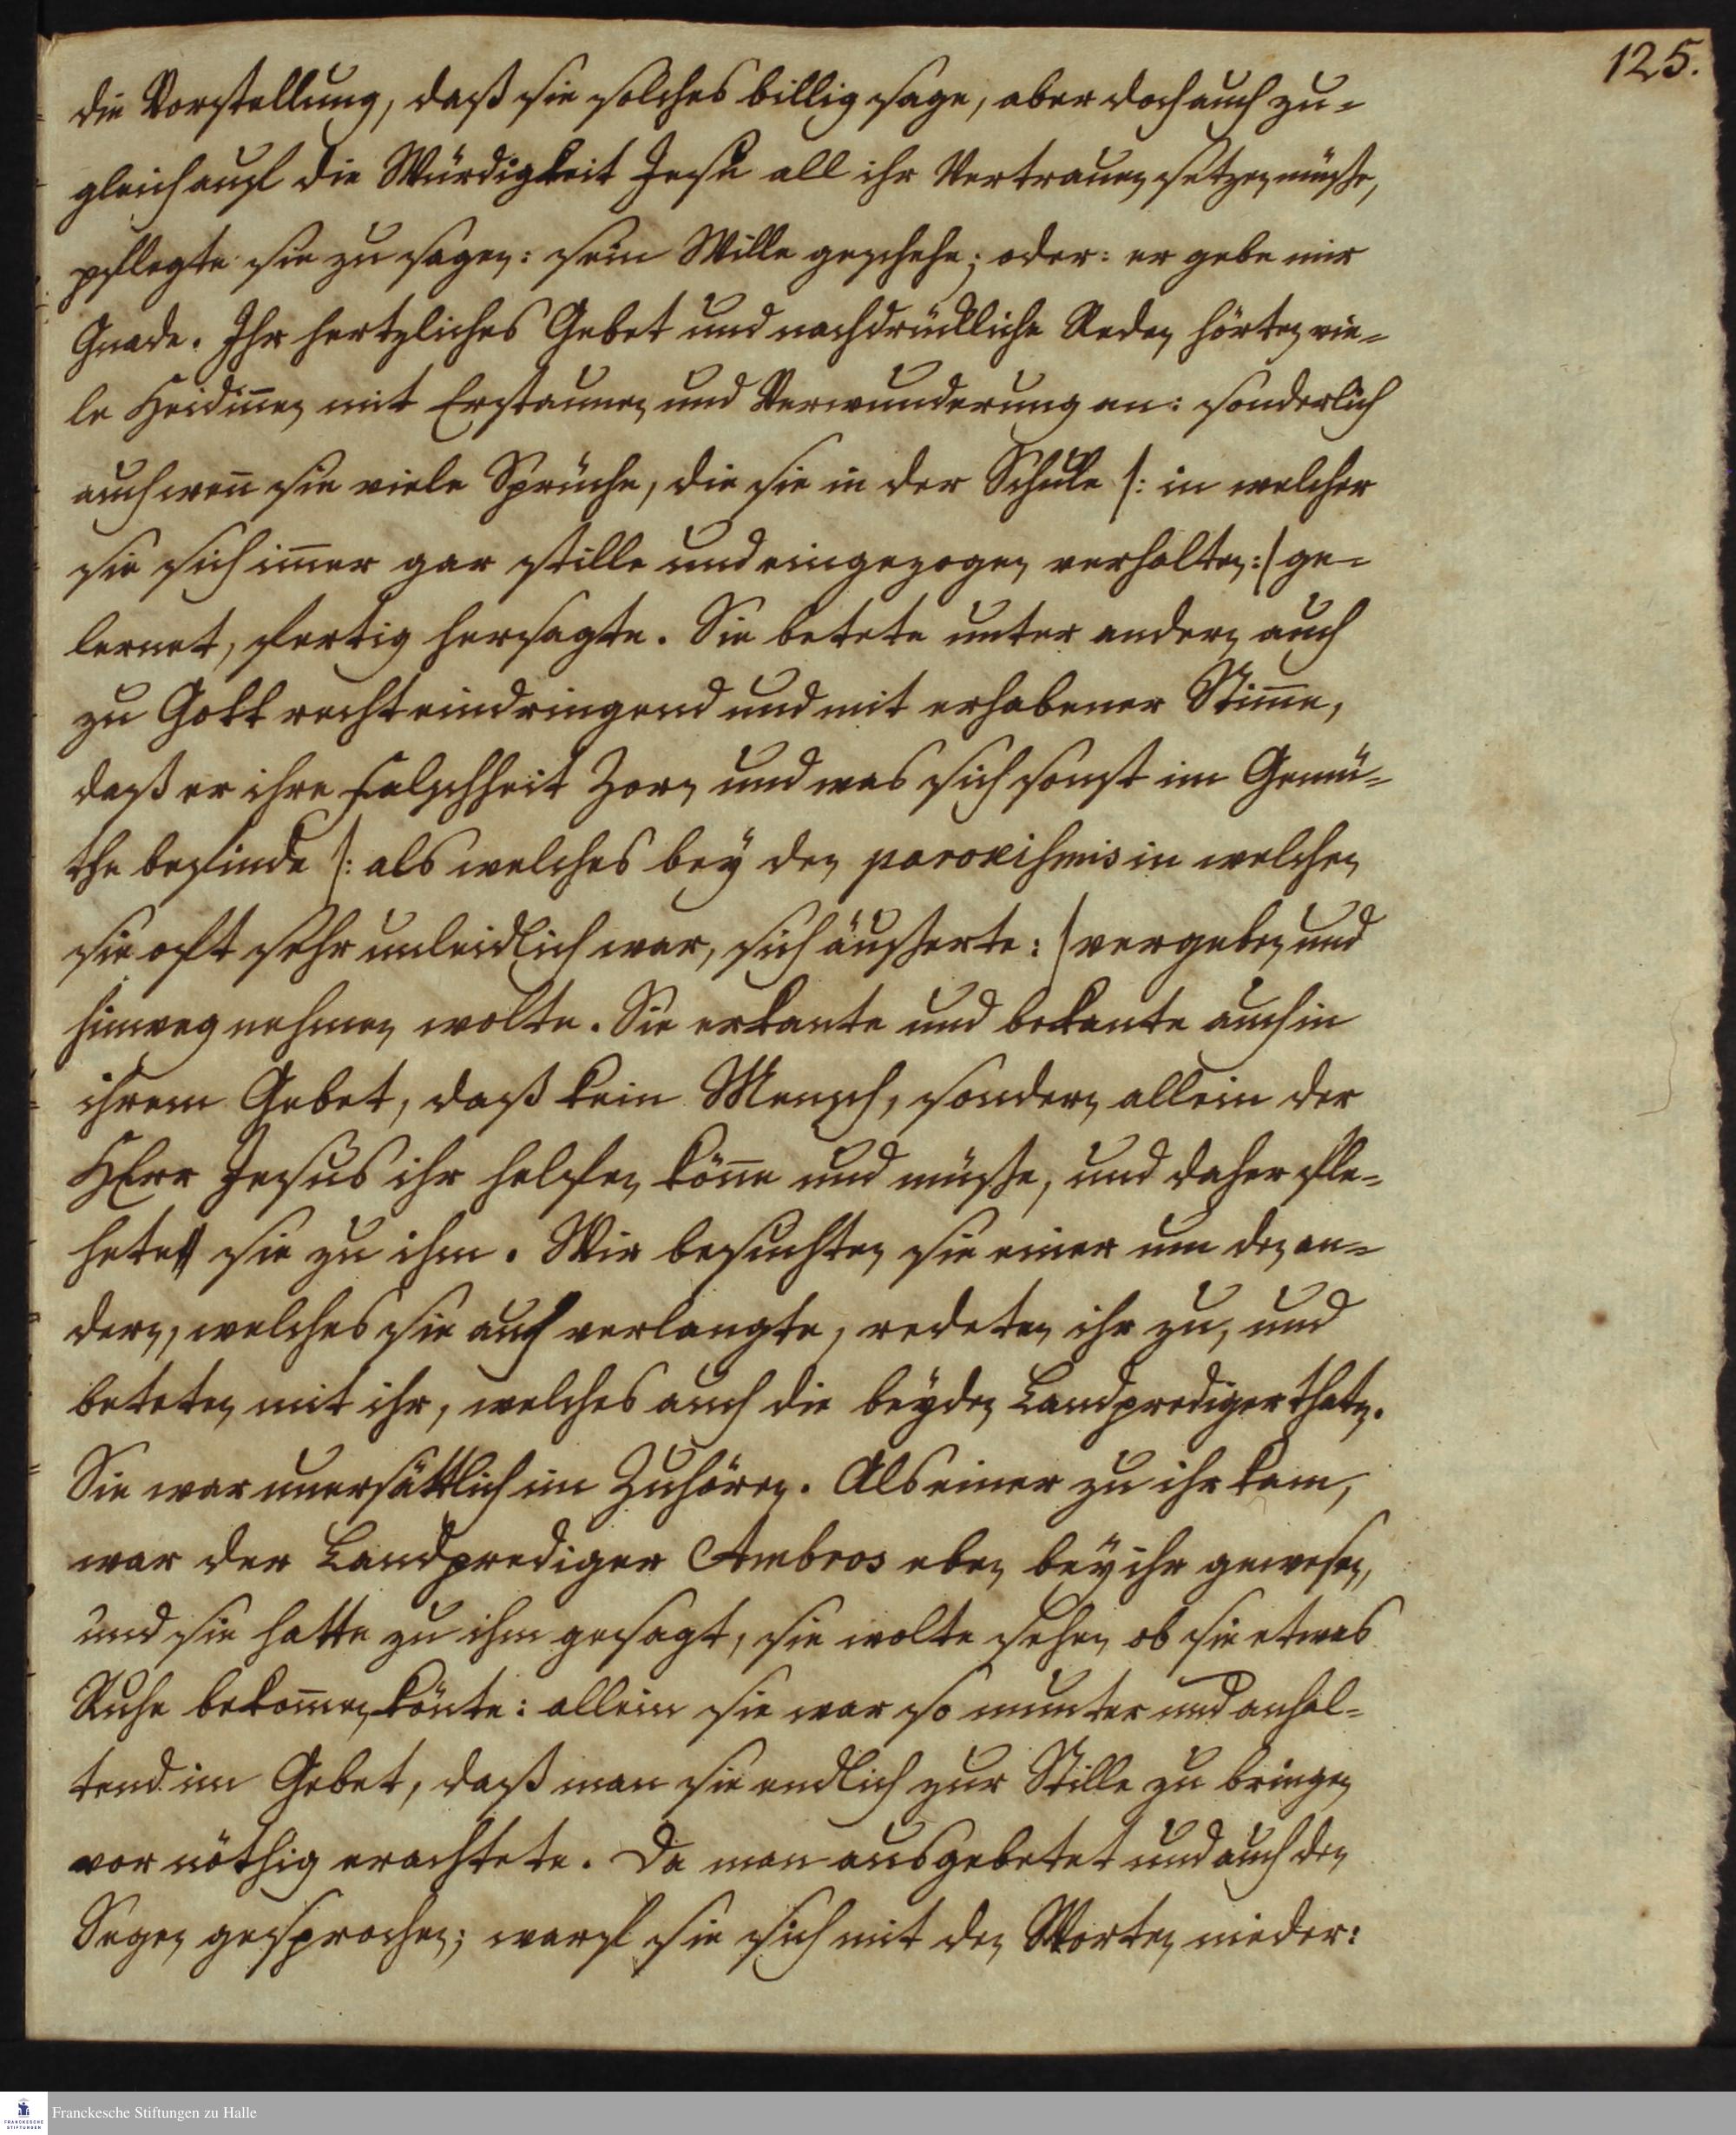 125.
die Vorstellung, daß sie solches billig sage, aber doch auch zu-
gleich auf die Würdigkeit Jesu all ihr Vertrauen setzen müße,
pflegte sie zu sagen: sein Wille geschehe; oder: er gebe mir
Gnade. Ihr hertzliches Gebet und nachdrückliche Reden hörten vie-
le Heidiñen mit Erstaunen und Verwunderung an: sonderlich
auch weñ sie viele Sprüche, die sie in der Schule /: in welcher
sie sich im̃er gar stille und eingezogen verhalten :/ ge-
lernet, fertig hersagte. Sie betete unter andern auch
zu Gott recht eindringend und mit erhabener Stim̃e,
daß er ihre Falschheit Zorn und was sich sonst im Gemü-
the befinde /: als welches bey den paroxismis in welchen
sie oft sehr unleidlich war, sich äußerte :/ vergeben und
hinweg nehmen wolte. Sie erkante und bekante auch in
ihrem Gebet, daß kein Mensch, sondern allein der
HErr Jesus ihr helfen köñe und müße, und daher fle-
hete sie zu ihm. Wir besuchten sie einer um den an-
dern, welches sie auch verlangte, redeten ihr zu, und
beteten mit ihr, welches auch die beyden Landprediger thaten.
Sie war unersättlich im Zuhören. Als einer zu ihr kam,
war der Landprediger Ambros eben bey ihr gewesen,
und sie hatte zu ihm gesagt, sie wolte sehen ob sie etwas
Ruhe bekom̃en könte: allein sie war so munter und anhal-
tend im Gebet, daß man sie endlich zur Stille zu bringen
vor nöthig erachtete. Da man ausgebetet und auch den
Segen gesprochen; warf sie sich mit den Worten nieder:
Franckesche Stiftungen zu Halle
FRANCKESCHE
STIFTUNGEN